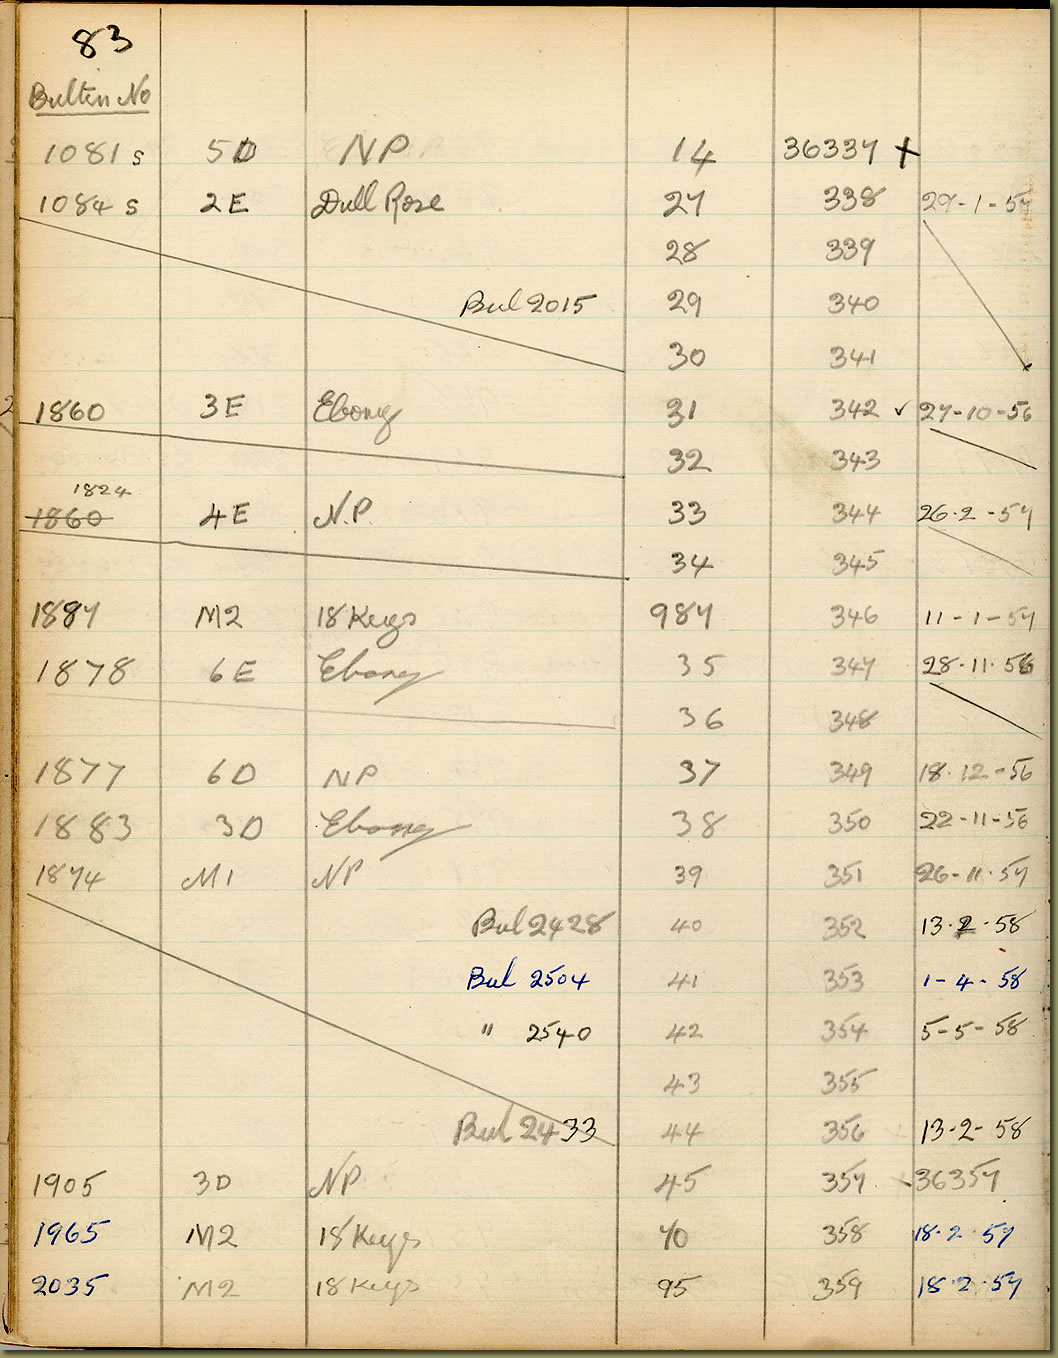 83
Bultin No
1081 s 5D NP 14 36337 +
1084 s 2E Dull Rose 27 338 29-1-57
28 339
Bul 2015 29 340
30 341
1860 3E Ebony 31 342 ✓ 27-10-56
32 343
1824
1860 4E N.P. 33 344 26-2-57
34 345
1887 M2 18 Keys 987 346 11-1-57
1878 6E Ebony 35 347 28-11-56
36 348
1877 6D NP 37 349 18-12-56
1883 3D Ebony 38 350 22-11-56
1874 M1 NP 39 351 26-11-57
Bul 2428 40 352 13-2-58
Bul 2504 41 353 1-4-58
" 2540 42 354 5-5-58
43 355
Bul 2433 44 356 13-2-58
1905 3D NP 45 357 36357
1965 M2 18 Keys 70 358 18-2-57
2035 M2 18 Keys 95 359 18-2-57